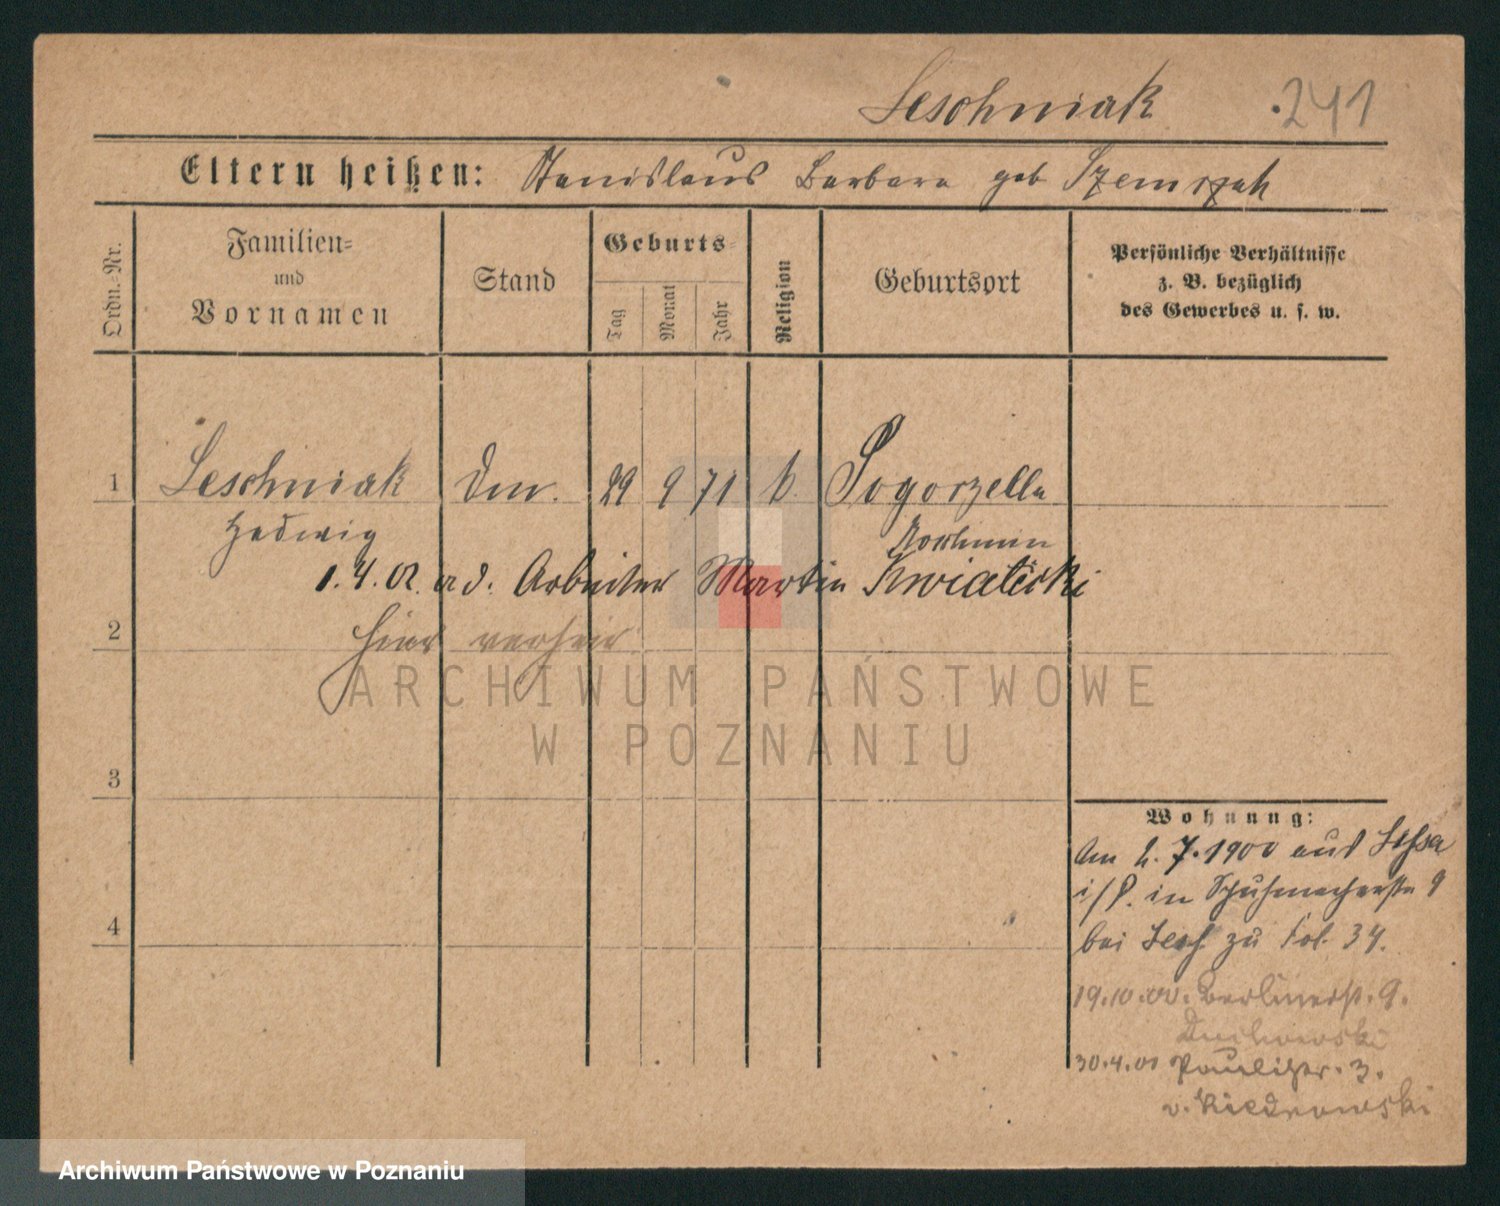 Leschniak 241
Eltern heißen: Stanislaus Barbara geb
Ordn.=Nr.
Familien=
und
Vornamen
Stand
Geburts=
Tag
Monat
Jahr
Religion
Geburtsort
Persönliche Verhältnisse
z. B. bezüglich
des Gewerbes u. s. w.
1 Leschniak 29 9 71 k. Pogorzella
Hedwig
1.4.01. ad. Arbeiter Martin Kwiatetski
2
hier verheir
ARCHIWUM PAŃSTWOWE
W POZNANIU
3
Wohnung:
Am 2. 7. 1900 aus Lissa
i/P. in Schuhmacherstr 9
4
bei Lesch zu Fol. 34.
19.10.00. Berlinerst. 9.
30.4.01 Paulistr. 3.
v. Niedrowski
Archiwum Państwowe w Poznaniu